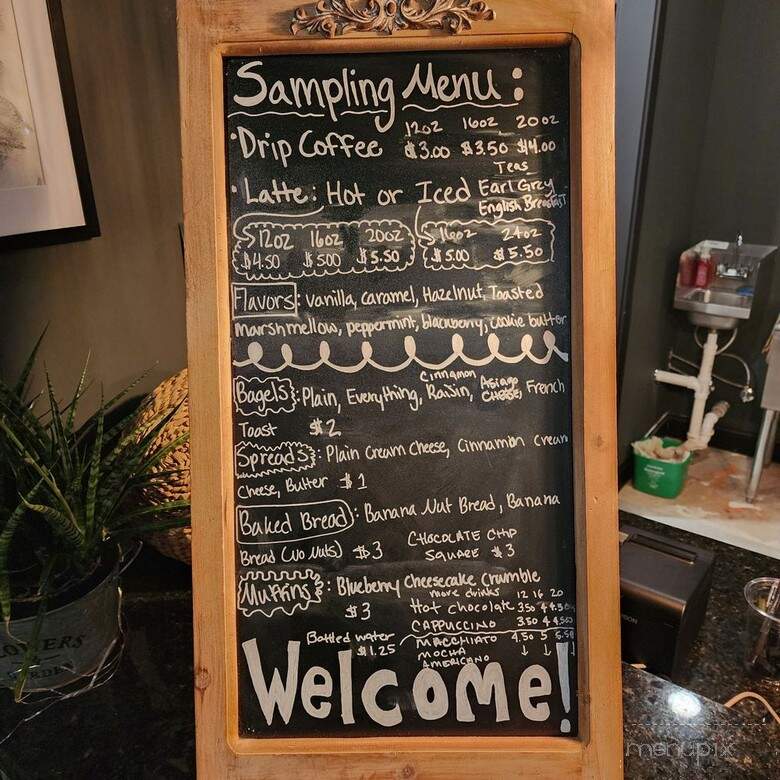 Sampling Menu:
12oz 16oz 20oz
•Drip Coffee $3.00 $3.50 $4.00
Teas
•Latte: Hot or Iced Earl Grey
English Breakfast
12oz 16oz 20oz 16oz 24oz
$4.50 $5.00 $5.50 $5.00 $5.50
Flavors: Vanilla, caramel, Hazelnut, Toasted
marshmellow, peppermint, blackberry, cookie butter
Cinnamon
Bagels: Plain, Everything, Raisin, Asiago Cheese, French
Toast $2
Spreads: Plain Cream Cheese, Cinnamon cream
Cheese, Butter $1
Baked Bread: Banana Nut Bread, Banana
Bread (No Nuts) $3 Chocolate Chip
Square $3
Muffins: Blueberry Cheesecake Crumble
$3 more drinks 12 16 20
Hot chocolate 350 4 4.50
Cappuccino 3.50 4 4.50
Bottled water Macchiato 4.50 5 5.50
$1.25 Mocha ↓ ↓ ↓
Americano
Welcome!
menupix